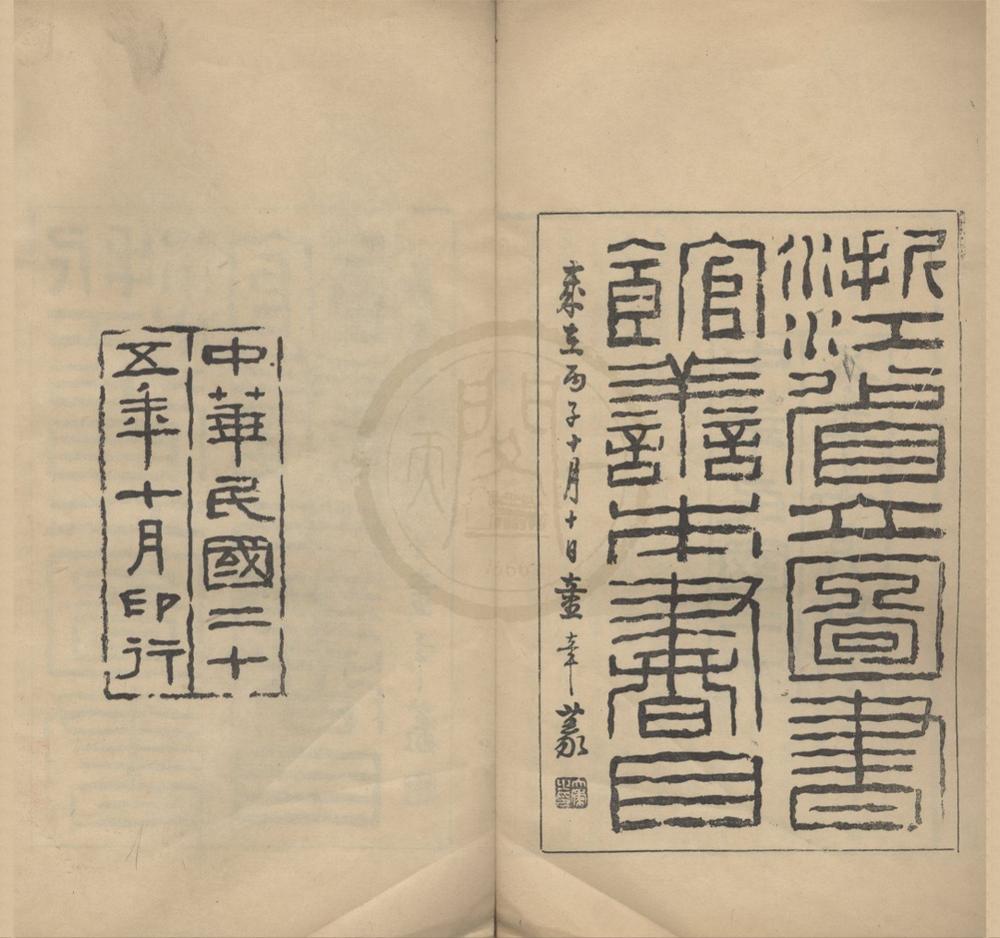 浙江省立圖書
館譱本書目
歲在丙子十月十日童篆
中華民國二十
五年十月印行